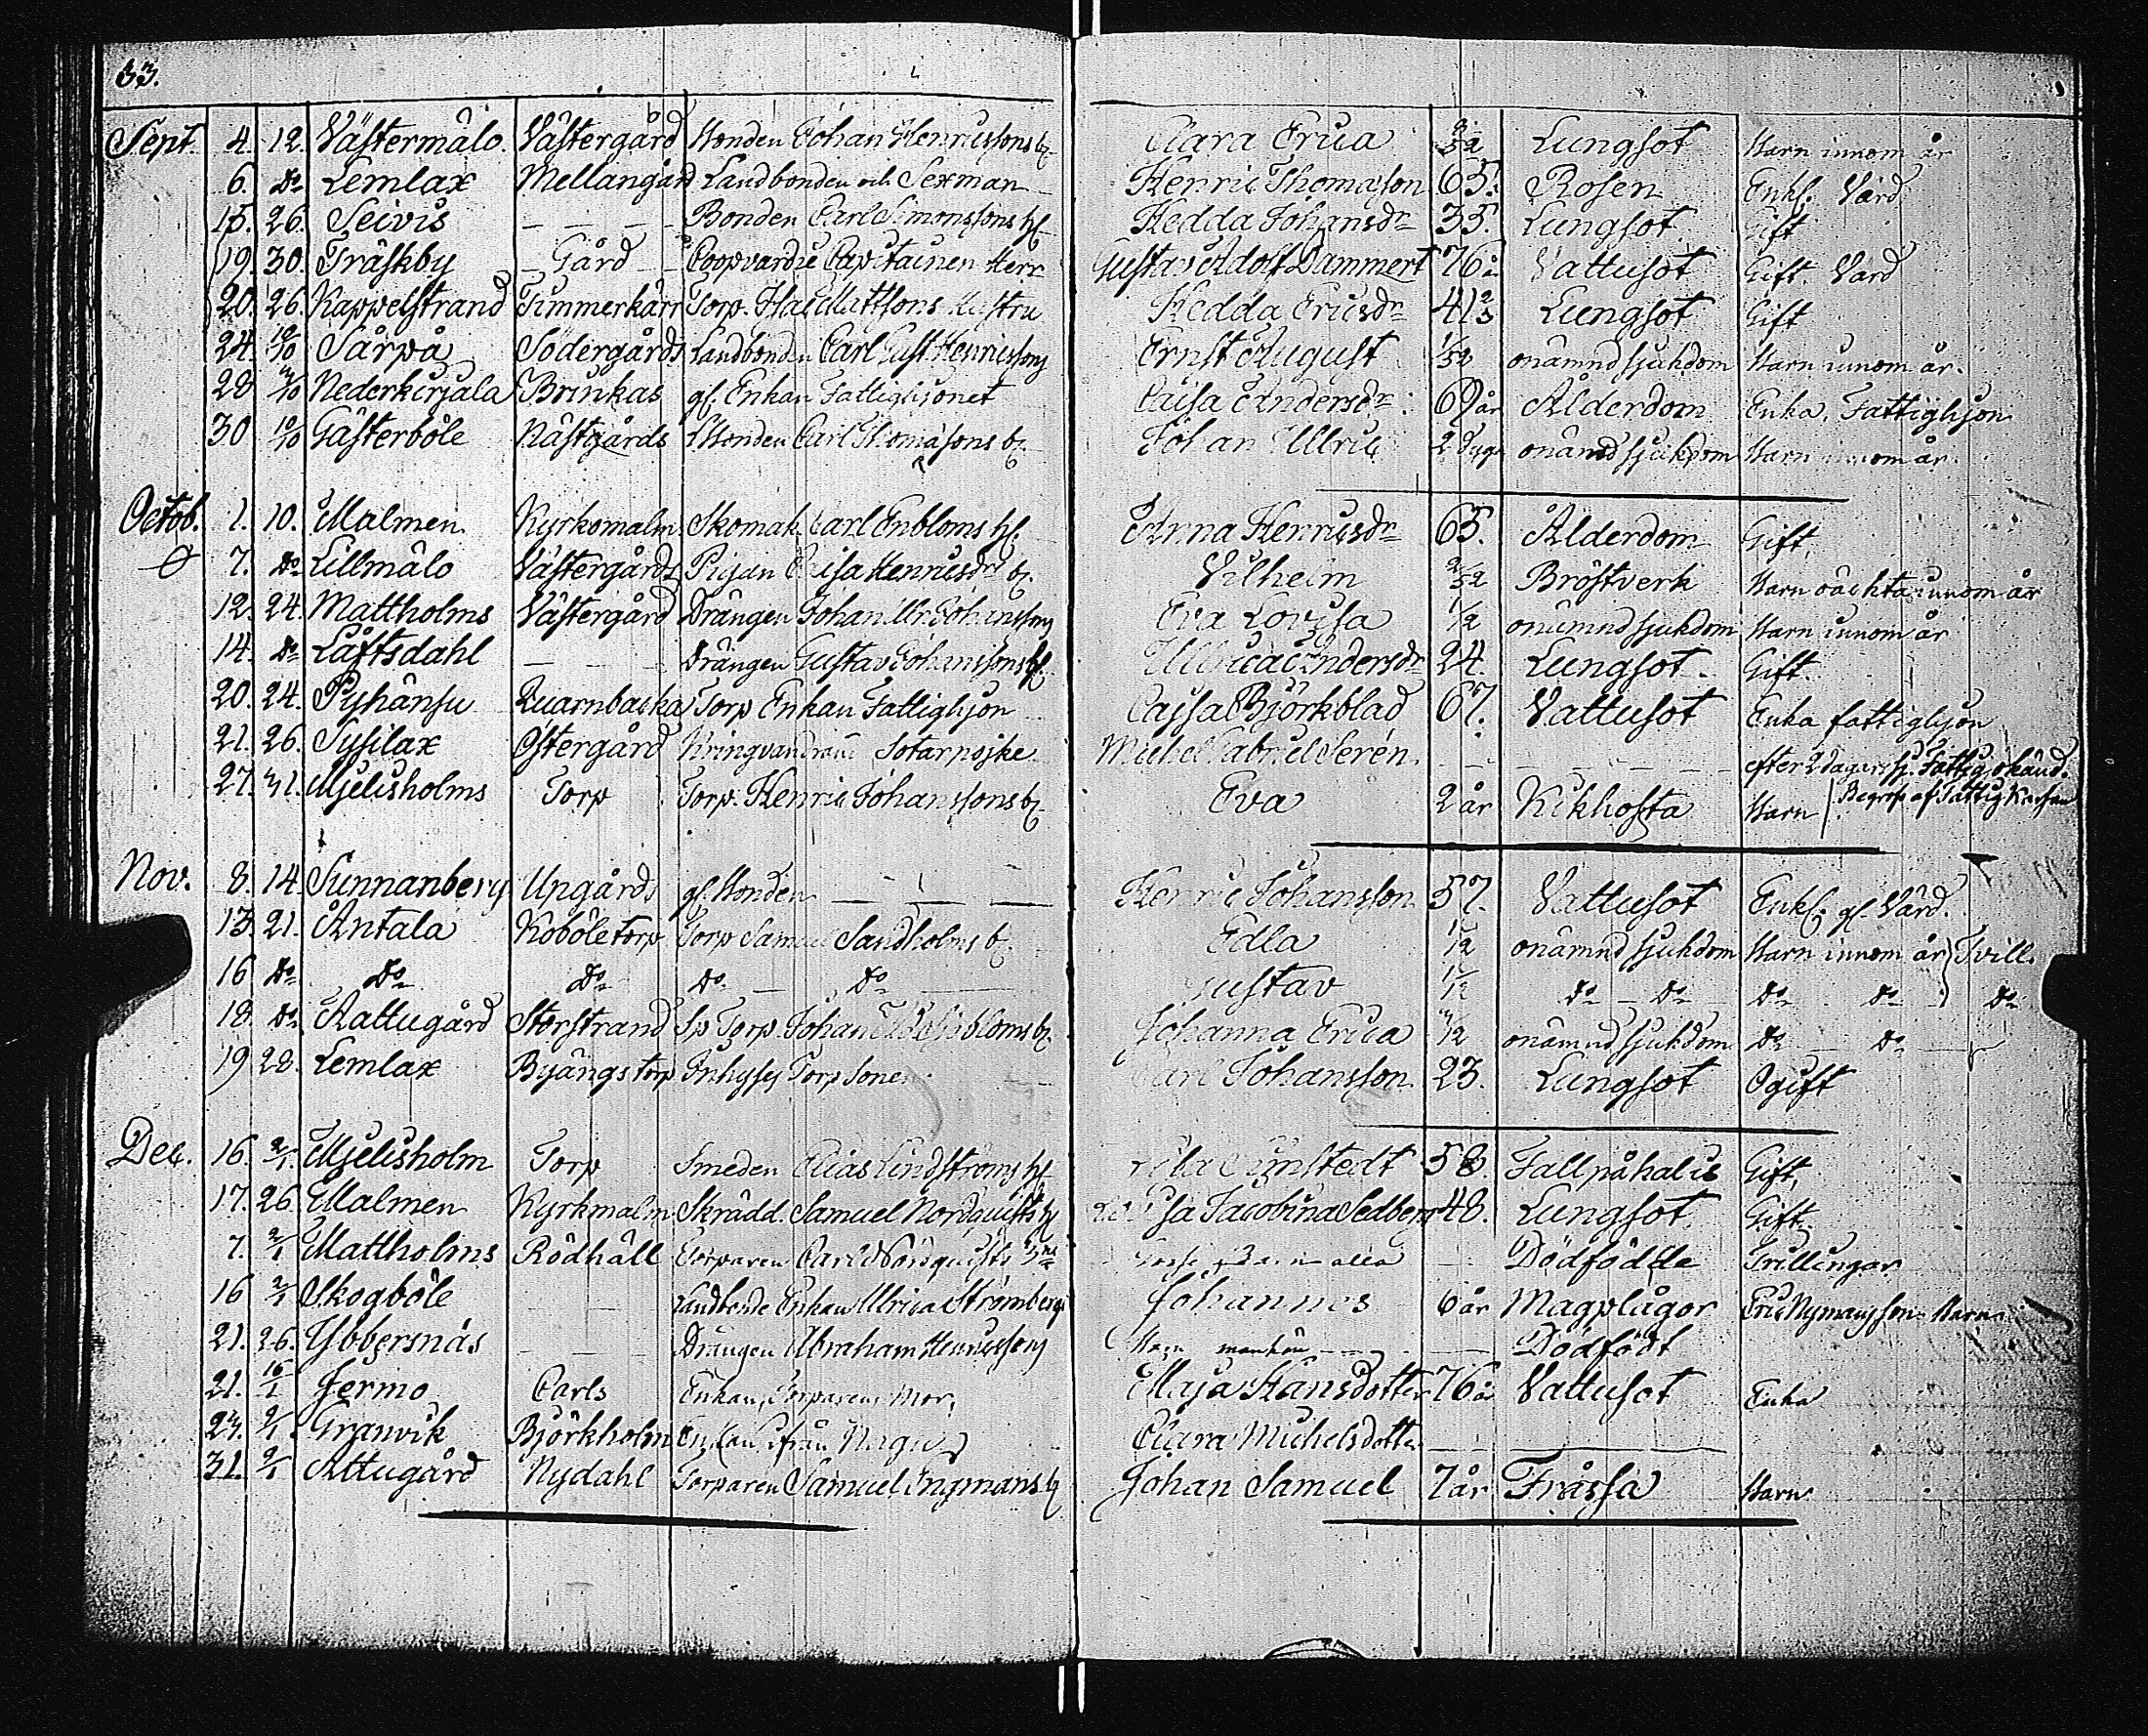 33.
Sept. 4. 12. Västermålo. Västergård Bonden Johan Henricssons b. Clara Erica 3/52 Lungsot Barn innom år
6. Do Lemlax Mellangård Landbonden och Sexman Henric Thomasson 65. Rosen Enkl. Värd
15. 26. Seivis Bonden Carl Simonssons h. Hedda Johansdr 35. Lungsot Gift
19. 30. Träskby Gård Coopvardie Capitainen Herr Gustav Adolf Dammert 76 å Vattusot Gift. Värd
20. 26. Kappelstrand Timmerkärr Torp. Isac Mattsons Hustru Hedda Ericsdr 41 Lungsot Gift
24. 10/10 Sarpå Södergårds Landbonden Carl Gust. Henricssons Ernst August 1/52 onämnd sjukdom Barn innom år.
28 3/10 Nederkirjala Brinkas gl. Enkan Fattighjonet Caisa Andersdr 69 år Ålderdom Enka, Fattighjon
30 10/10 Gästerböle Nästgårds Bonden Carl Thomassons b. Johan Ullric 2 dygn onämd sjukdom Barn innom år.
Octob. 1. 10. Malmen Kyrkomalm. Skomak. Carl Enbloms h. Anna Henricsdr 65. Ålderdom Gift
7. Do Lillmälo Västergårds Pigan Caisa Henricsdrs b. Vilhelm 2/52 Bröstverk Barn oächta innom år
12. 24. Mattholms Västergård Drängen Johan Ulr. Johanssons Eva Lovisa 1/12 onämnd sjukdom Barn innom år
14. Do Läftsdahl Drängen Gustav Johanssons h. Ullrica Andersdr 24. Lungsot. Gift.
20. 24. Pyhänsu Quarnbacka Torp Enkan Fattighjon Cajsa Björkblad 67. Vattusot Enka fattighjon
21. 26. Sysilax Östergård Kringvandrand Sotarpojke Michel Gabriel Serén. efter 2 dagars sj. Fattig okänd.
27. 31. Mjelisholms Torp Torp. Henric Johanssons b. Eva 2 år Kikhosta Barn Begrop af Fattig Kassan
Nov. 8. 14. Sunnanberg Uppgårds gl. Bonden Henric Johansson 57. Vattusot Enkl. gl. Värd.
13. 21. Antala Koböletorp Torp Samuel Sandholms b. Edla 1/12 onämnd sjukdom Barn innom år Tvill.
16 Do Do Do Do Do Gustav 1/12 Do Do Do Do Do
18. Do. Rattugård Storstrand Sp Torp. Johan b. Johanna Erica /12 onämnd sjukdom Do Do
19 28. Lemlax Byängstorp Inhyses Torp Sonen Carl Johansson 23. Lungsot Ogift
Dec. 16. 2/1. Mjelisholm Torp Smeden Elias Lindströms h. 58. Fall på hal is Gift.
17. 26 Malmen Kyrkmalm Skrädd. Samuel Nordquists h Lovisa Jacobina Sedberg 48. Lungsot. Gift.
7. 2/1 Mattholms Rödhäll Torparen Carl Nordquists 3ne Barn alla Dödfödde Trillingar
16 2/1 Skogböle Enkan Ulrica Strömbergs Johannes 6 år Magplågor Eric Nymansson Barn
21. 26. Ybbersnäs Drängen Abraham Henricssons Barn mankön Dödfödt
21. 16/1 Jermo Carls Enkan, Torparens Mor, Maja Hansdotter 76 å Vattusot Enka
24. 2/1 Granvik Björkholm Enkan ifrån Nagu Clara Michelsdotter
31. 2/1 Attugård Nydahl Torparen Samuel Ingmans b Johan Samuel 7 år Frässa Barn